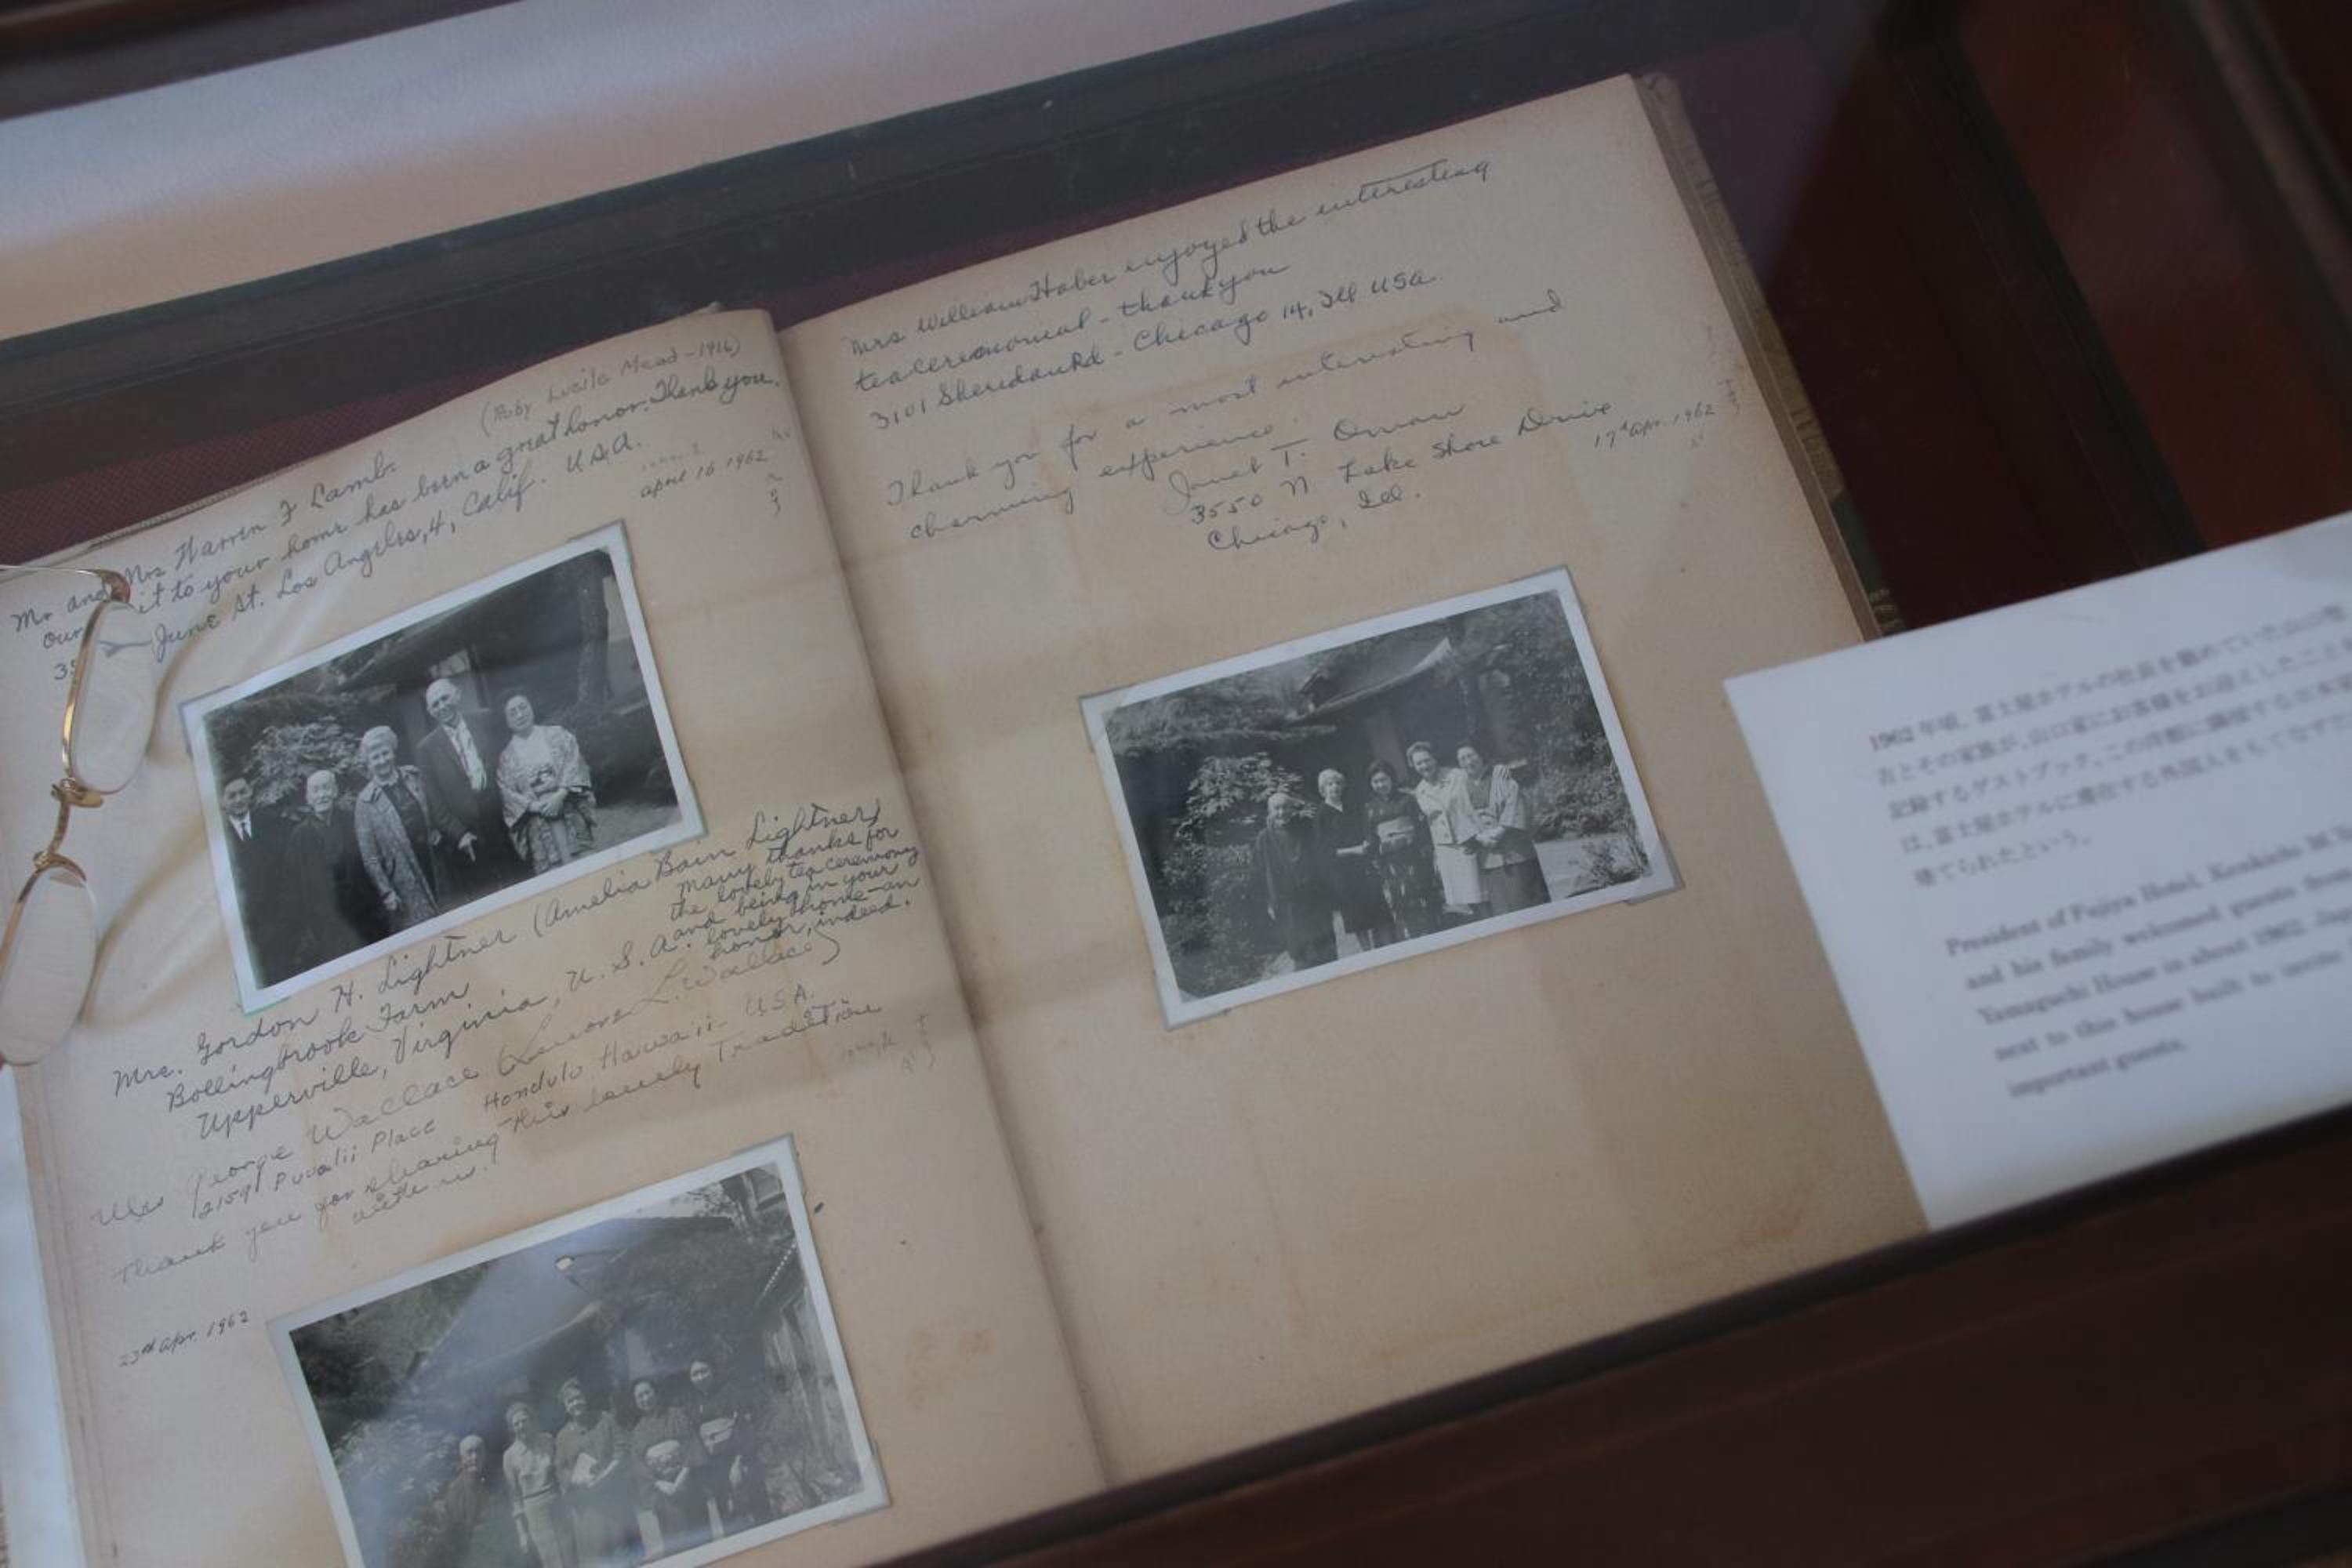 (Ruby Lucile Mead-1916)
Mr and Mrs Warren F Lamb.
Our it to your home has been a great honor. Thank you.
35 June St. Los Angeles, 4, Calif. U.S.A.
april 16 1962
Mrs. Gordon H. Lightner (Amelia Bain Lightner)
Bollingbrook Farm
Upperville, Virginia, U.S.A.
many thanks for
the lovely tea ceremony
and being in your
lovely home-an
honor, indeed.
Mrs George Wallace (Lenore L. Wallace)
Puualii Place Honolulu, Hawaii- U.S.A.
Thank you for sharing this lovely Tradition
with us.
23rd Apr. 1962
Mrs William Haber enjoyed the interesting
tea ceremonial - thank you
3101 Sheridan Rd - Chicago 14, Ill USA.
Thank you for a most interesting and
charming experience.
Janet T.
3550 N Lake Shore Drive
Chicago, Ill.
17th Apr. 1962
1962年頃、富士屋ホテルの社長を勤めていた山口堅
吉とその家族が、山口家にお客様をお迎えしたことを
記録するゲストブック。この洋館に隣接する日本
は、富士屋ホテルに滞在する外国人をもてなすた
建てられたという。
President of Fujiya Hotel, Kenkichi M.
and his family welcomed guests from
Yamaguchi House in about 1962.
next to this house built to invite
important guests.